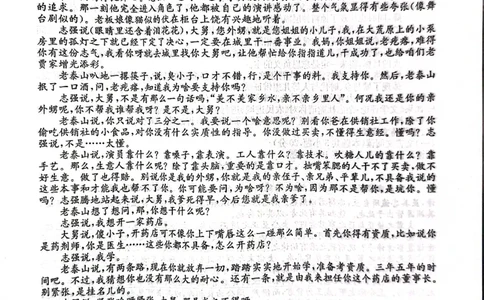 的追求。那一刻他完全进入角色了，他都被自己的演讲感动了。整个气氛显得有些夸张(像舞
台剧似的)。老板娘像猫似的伏在柜台上饶有兴趣地听着。
志强说(眼睛里还含着泪花花)，大舅，您外甥，就是您姐姐的小儿子，我，在大荒原上的小泵
房里的孤灯之下就已经下定了决心，一定要在城里干一番事业。我妈，你姐姐说，老疙瘩，难得
你有这份志气，我看你呀就去城里找你大舅吧，让他帮忙给你指指道儿，干成功了，也给咱们老
贾家增光添彩。
老泰山叭地一摞筷子，说，臭小子，口才不错，行，是个干事的料。我支持你。然后，老泰山
抿了一口酒，问，老疙瘩，知道我为啥要支持你吗？
志强说，大舅，不是有那么一句话吗，“美不美家乡水，亲不亲乡里人”。何况我还是你的亲
外甥呢，你不帮我谁帮我呀？是不是，大舅？
老泰山说，你只说对了三分之一。我要说一个啥意思呢？别看你爸在供销社工作，除了你
偷吃供销社的小食品，对你没有什么实质性的指导。你没做过买卖，不懂得生意经。懂吗？志
强说，不是……太懂。
老泰山说，演员靠什么？靠嗓子，靠表演。工人靠什么？靠技术。吹糖人儿的靠什么？靠
手艺。那么，生意人靠什么呢？除了靠头脑，重要的是靠口才。拙嘴笨腮的人干不了买卖，做不
好生意。做了也得赔。别说你是我的外甥，你就是我的亲侄子、亲兄弟、平辈儿，不具备我说的
这些本事和才能我也帮不了你。你可能要问，为啥呀？不为啥，因为那不是帮你，是坑你。懂
吗？志强腾地站起来说，大舅，我爹死得早，今后您就是我亲爹了。
老泰山想了想问，那，你想干什么呢？
志强说，我想开一家药店。
大舅说，傻小子，开药店可不像你上下嘴唇这么一碰那么简单。首先你得有资质，比如说你
是药剂师，你是医生……这些你都不具备，怎么开药店？
志强说，我学。
老泰山说，有两条路，现在你就放弃一切，踏踏实实地开始学，准备考资质。三年五年的时
间吧。不过，我猜想你也没有那么大的耐心。还有一条，就是由我来担任你这个药店的董事长。
别紧张，是挂名儿的。